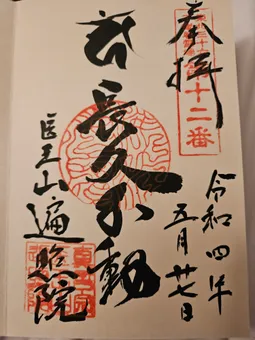 奉拝
十二番
令和四年
五月廿七日
長久不動
医王山
遍照院